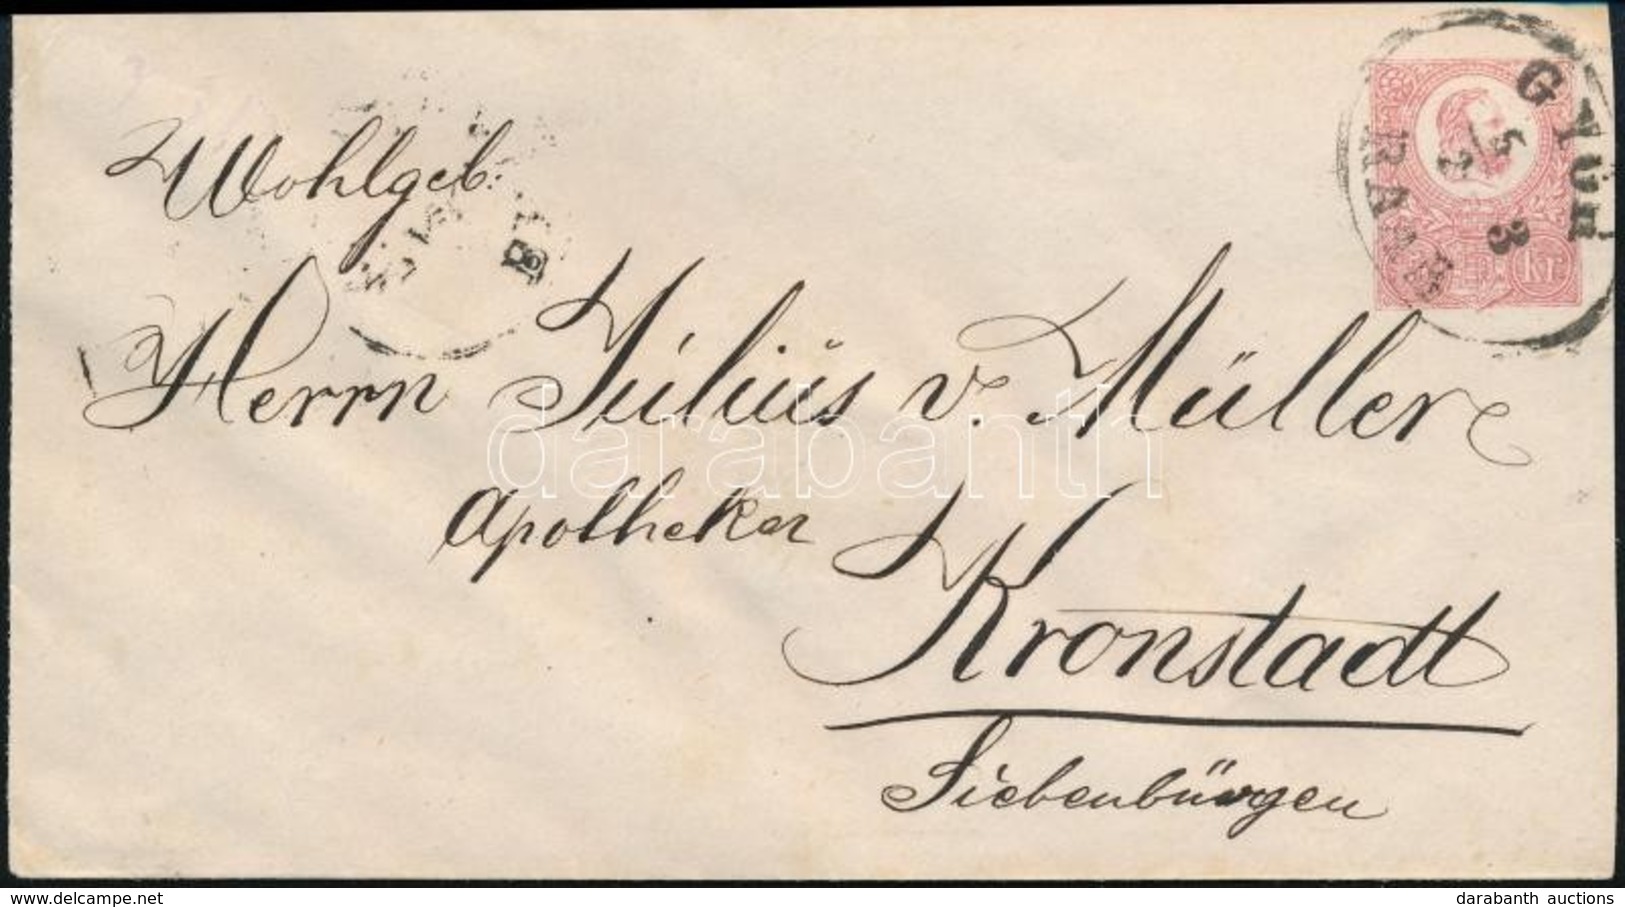 GYŐR
RAAB
5/2
3
Kr
Wohlgeb:
Herrn Július v. Müller
Apotheker
Kronstadt
Siebenbürgen
darabanth
darabanth auctions